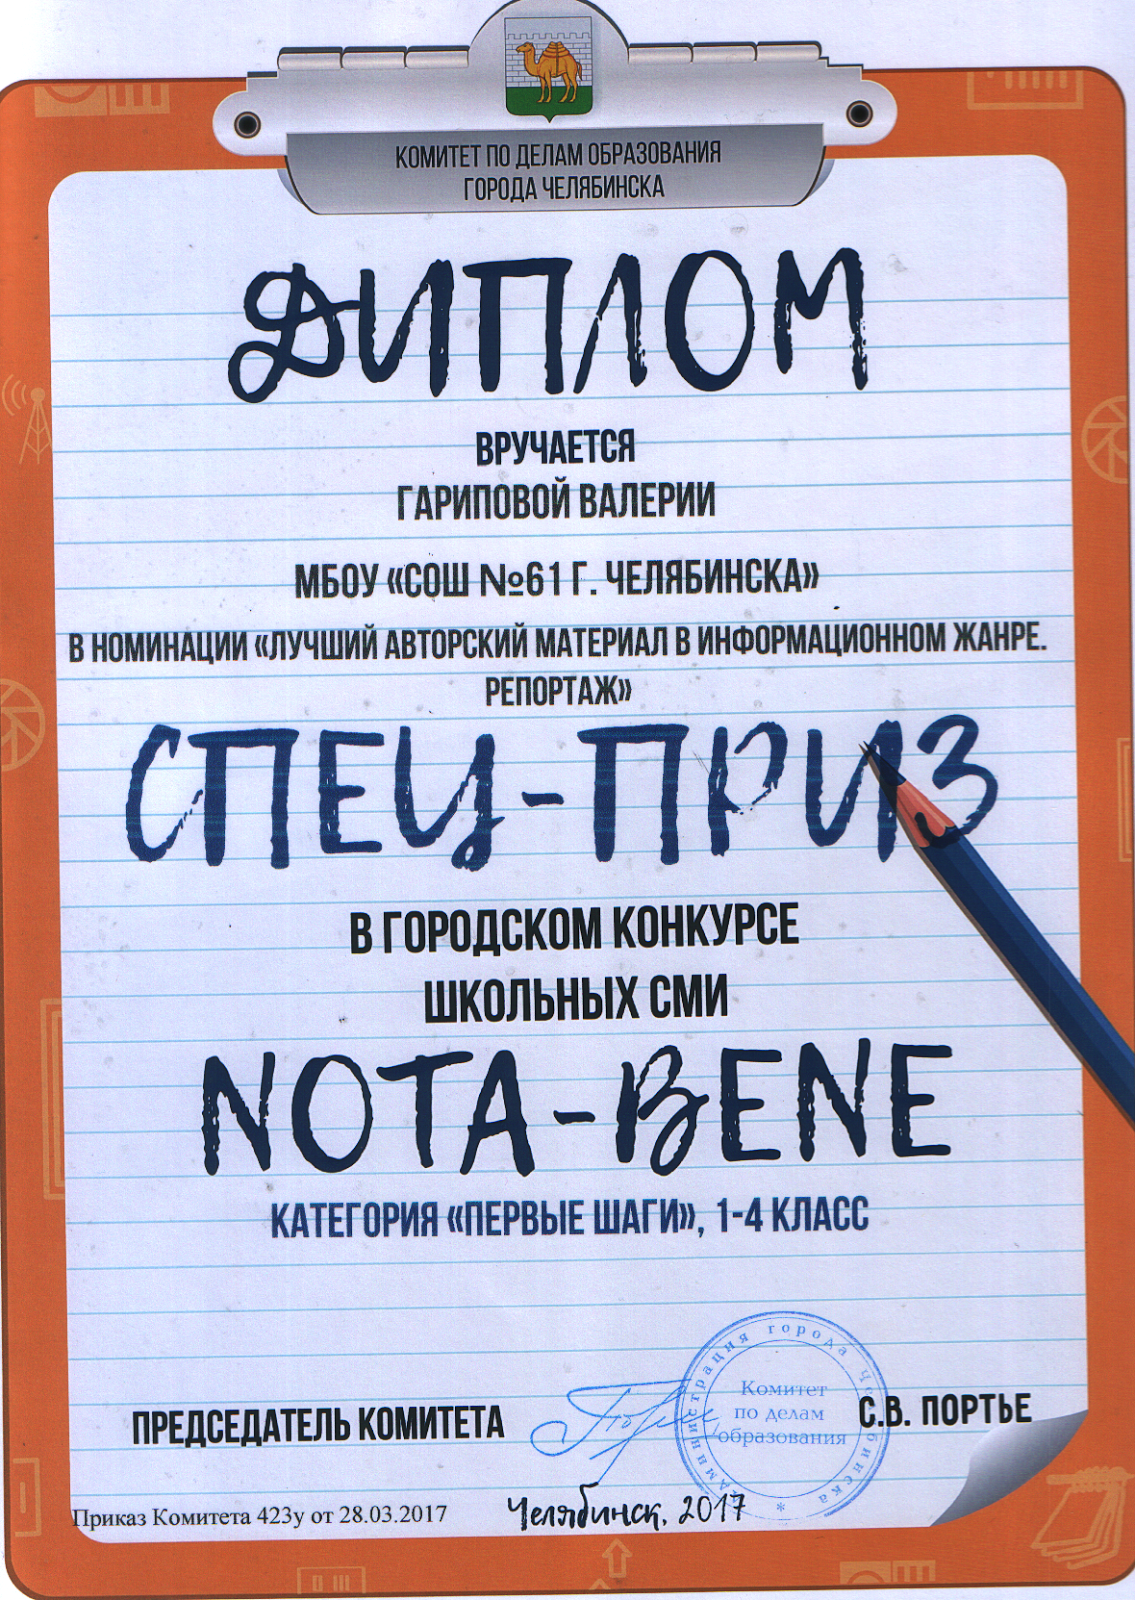 КОМИТЕТ ПО ДЕЛАМ ОБРАЗОВАНИЯ
ГОРОДА ЧЕЛЯБИНСКА
ДИПЛОМ
ВРУЧАЕТСЯ
ГАРИПОВОЙ ВАЛЕРИИ
МБОУ «СОШ №61 Г. ЧЕЛЯБИНСКА»
В НОМИНАЦИИ «ЛУЧШИЙ АВТОРСКИЙ МАТЕРИАЛ В ИНФОРМАЦИОННОМ ЖАНРЕ.
РЕПОРТАЖ»
СПЕЦ-ПРИЗ
В ГОРОДСКОМ КОНКУРСЕ
ШКОЛЬНЫХ СМИ
NOTA-BENE
КАТЕГОРИЯ «ПЕРВЫЕ ШАГИ», 1-4 КЛАСС
ПРЕДСЕДАТЕЛЬ КОМИТЕТА
С.В. ПОРТЬЕ
Администрация города Челябинска *
Комитет
по делам
образования
Приказ Комитета 423у от 28.03.2017
Челябинск, 2017